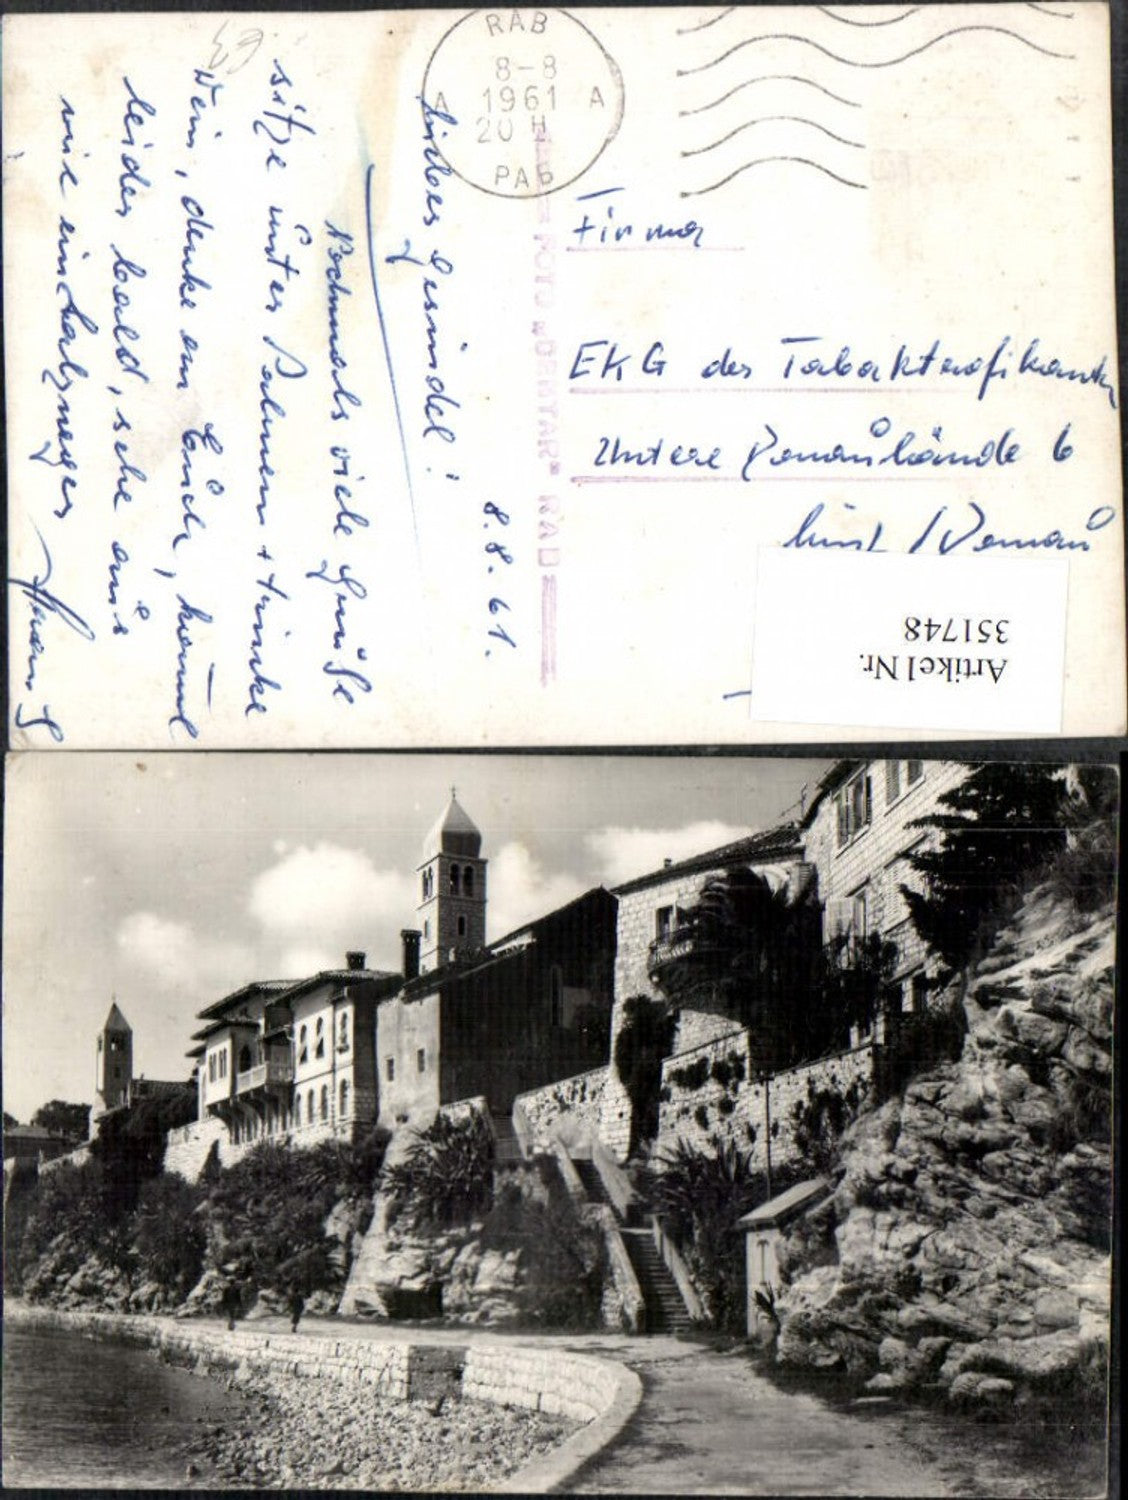 RAB
8-8
A 1961 A
20 H
РАБ
FOTO "DENTAR" RAB
8.8.61.
Liebes Gesindel!
Nochmals viele Grüße
sitze unter Palmen + trinke
Wein, denke an Euch, komme
leider bald, sehe aus
wie ein Halbneger
Firma
EKG der Tabaktrafikanten
Untere Donaulände 6
Linz / Donau
Artikel Nr.
351748